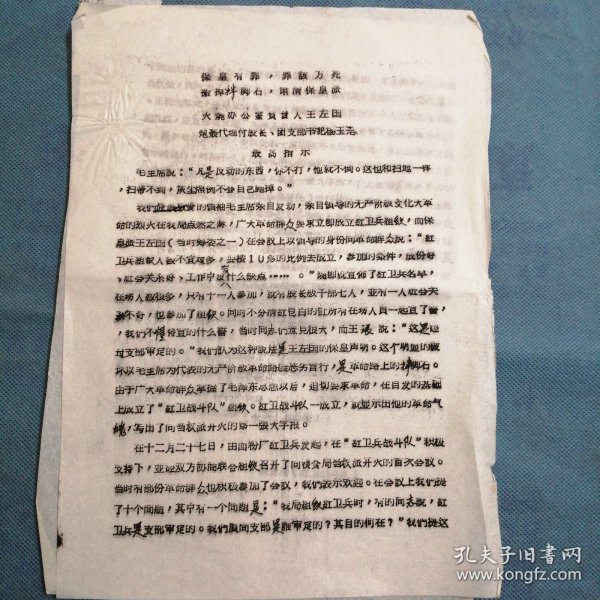 保皇有罪，罪该万死
搬掉绊脚石，肃清保皇派
火烧办公室负责人王左国
炮轰代理付股长、团支部书记杨玉尧
最高指示
毛主席说：“凡是反动的东西，你不打，他就不倒。这也和扫地一样
，扫帚不到，灰尘照例不会自己跑掉。”
我们最敬爱的领袖毛主席亲自发动，亲自领导的无产阶级文化大革
命的烈火在我局点燃之际，广大革命群众要求立即成立红卫兵组织，而保
皇派王左国（当时筹委之一）在会议上以领导的身份向革命群众说：“红
卫兵组织人数不宜过多，要按10%的比例去成立，参加的条件，成份好
、社会关系好、工作中没有什么缺点……。”随即就宣佈了红卫兵名单，
在场人数很多，只有十一人参加，就有股长级干部七人，並有一人社会关
系不好，也参加了组织。同时不分清红皂白的让所有在场人员一起宣了誓
，我们不懂得宣的什么誓，当时同志们意见很大，而王说：“这是通
过支部审定的。”我们认为这种说法是王左国的保皇声明。这个明显的破
坏以毛主席为代表的无产阶级革命路线的言行，是革命路上的绊脚石。
由于广大革命群众掌握了毛泽东思想以后，迫切要求革命，在自发的基础
上成立了“红卫战斗队”组织。红卫战斗队一成立，就显示出他的革命气
魄，写出了向当权派开火的第一张大字报。
在十二月二十七日，由面粉厂红卫兵发起，在“红卫兵战斗队”积极
支持下，並经双方协商联合组织召开了向粮食局当权派开火的首次会议。
当时有部份革命群众也积极参加了会议，我们表示欢迎。在会议上我们提
了十个问题，其中有一个问题是：“我局组织红卫兵时，有的同志说，红
卫兵是支部审定的。我们质问支部是谁审定的？其目的何在？”我们提这
孔夫子旧书网
www.kongfz.com